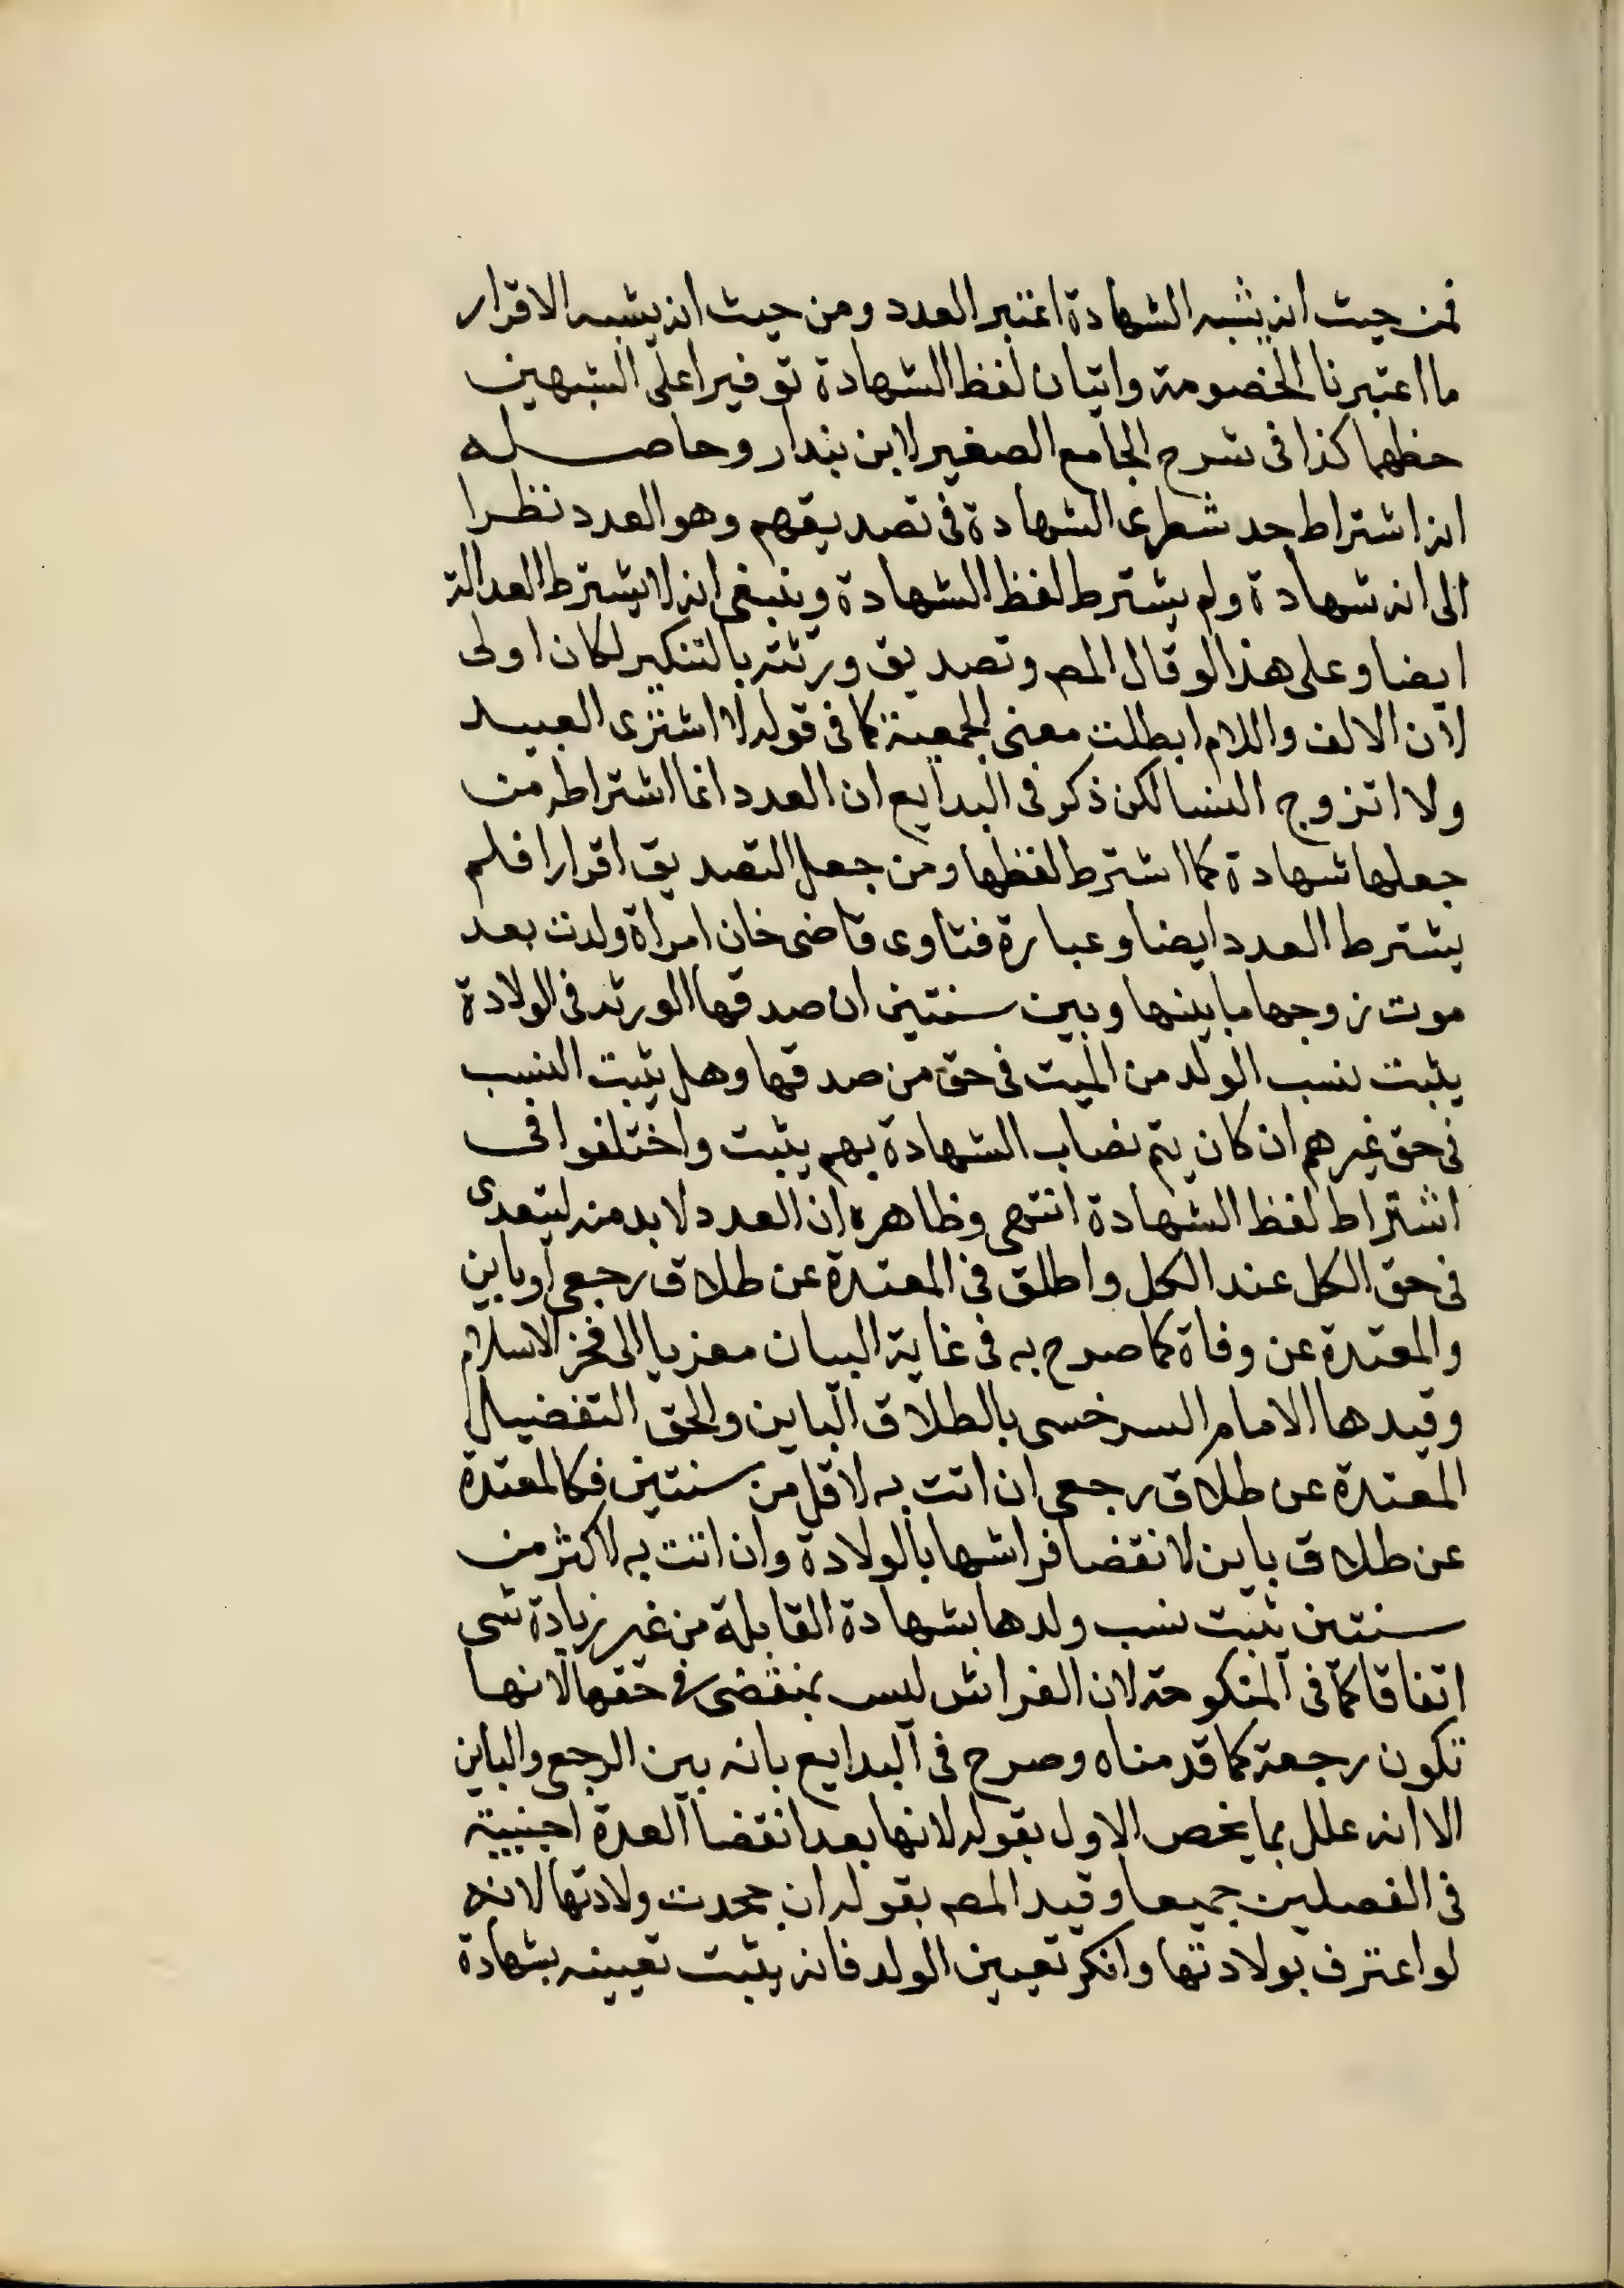 فمن حيث انه يشبه الشهادة اعتبر العدد ومن حيث انه يشبه الاقرار
ما اعتبرنا الخصومة واتيان لفظ الشهادة توفيرا على الشبهين
حظهما كذا فى شرح الجامع الصغير لابن بندار وحاصله
انه اشتراط احد شطرى الشهادة فى تصديقهم وهو العدد نظرا
الى انه شهادة ولم يشترط لفظ الشهادة وينبغى انه لا يشترط العدالة
ايضا وعلى هذا لو قال المص وتصديق ورثته بالتنكير لكان اولى
لان الالف واللام ابطلت معنى الجمعية كما فى قوله لا اشترى العبيد
ولا اتزوج النسا لكن ذكر فى البدايع ان العدد انما اشتراطه من
جعلها شهادة كما اشترط لفظها ومن جعل التصديق اقرارا فلم
يشترط العدد ايضا وعبارة فتاوى قاضى خان امراة ولدت بعد
موت زوجها ما بينها وبين سنتين ان صدقها الورثه فى الولادة
يثبت نسب الولد من الميت فى حق من صدقها وهل يثبت النسب
فى حق غيرهم ان كان يتم نصاب الشهادة بهم يثبت واختلفوا فى
اشتراط لفظ الشهادة انتهى وظاهره ان العدد لا بد منه ليتعدى
فى حق الكل عند الكل واطلق فى المعتدة عن طلاق رجعى او باين
والمعتدة عن وفاة كما صرح به فى غاية البيان معزيا الى فخر الاسلام
وقيدها الامام السرخسى بالطلاق الباين والحق التفضيل
المعتدة عن طلاق رجعى ان اتت به لاقل من سنتين فكالمعتدة
عن طلاق باين لانقضا فراشها بالولادة وان اتت به لاكثر من
سنتين ثبت نسب ولدها بشهادة القابلة من غير زيادة شى
اتفاقا كما فى المنكوحة لان الفراش ليس بمنقضى فى حقها لانها
تكون رجعة كما قدمناه وصرح فى البدايع بانه بين الرجعى والباين
الا انه علل بما يخص الاول بقوله لانها بعد انقضا العدة اجنبية
فى الفصلين جميعا وقيد المص بقوله ان جحدت ولادتها لانه
لو اعترف بولادتها وانكر تعيين الولد فانه يثبت تعيينه بشهادة